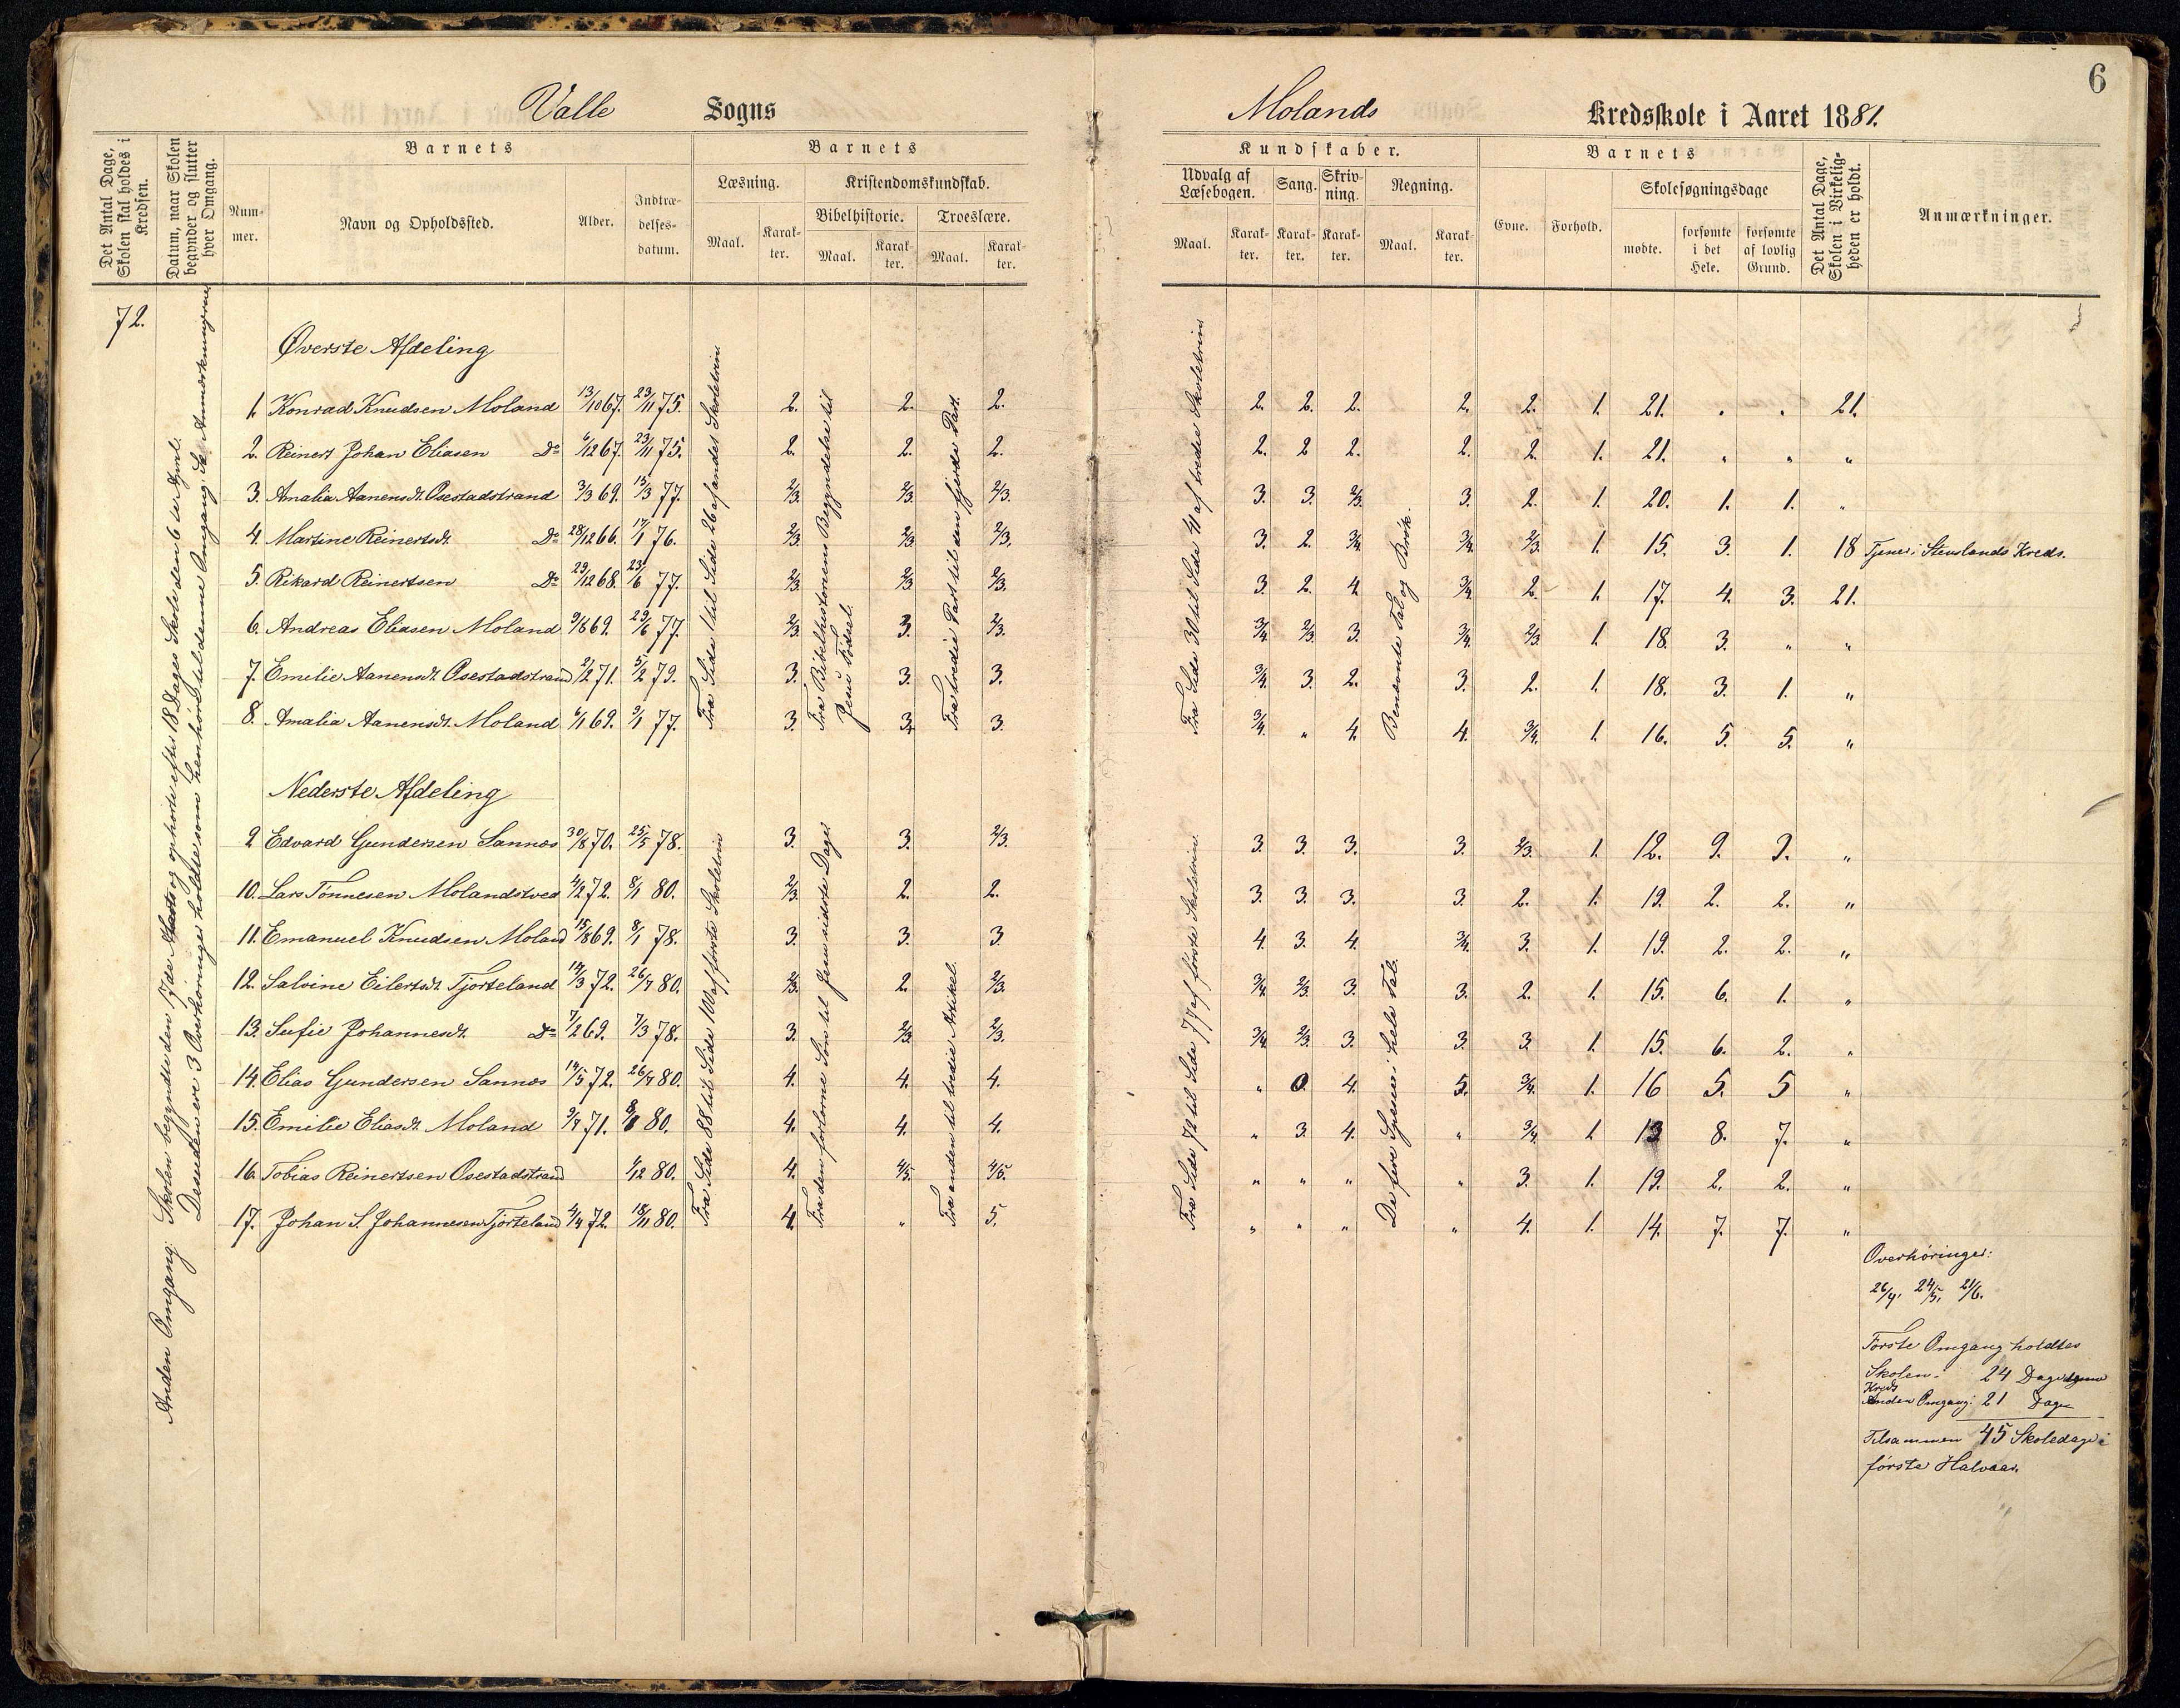 6
Valle Sogns
Molands Kredsskole i Aaret 1881.
Det Antal Dage, Skolen skal holdes i Kredsen.
Datum, naar Skolen begynder og slutter hver Omgang.
Barnets
Nummer.
Navn og Opholdssted.
Alder.
Indtrædelsesdatum.
Barnets
Læsning.
Maal.
Karakter.
Kristendomskundskab.
Bibelhistorie.
Maal.
Karakter.
Troeslære.
Maal.
Karakter.
Kundskaber.
Udvalg af Læsebogen.
Maal.
Karakter.
Sang.
Karakter.
Skrivning.
Karakter.
Regning.
Maal.
Karakter.
Barnets
Evne.
Forhold.
Skolesøgningsdage
mødte.
forsømte i det Hele.
forsømte af lovlig Grund.
Det Antal Dage, Skolen i Virkeligheden er holdt.
Anmærkninger.
72.
Anden Omgang: Skolen begyndte den 17de Marts og ophørte efter 18 Dages Skole den 6te April.
Desuden ere 3 Overhøringer holdte som henhøre til denne Omgang. Se Anmærkningerne
Øverste Afdeling
Fra Side 1 til Side 26 af andet Skoletrin
Fra Bibelhistoriens Begyndelse til
Jesu Fødsel.
Fra tredie Part til den fjerde Part.
Fra Side 30 til Side 41 af tredie Skoletrin
Benævnte Tal og Brøk.
1. Konrad Knudsen Moland 13/10 67. 23/11 75. 2. 2. 2. 2. 2. 2. 2. 2. 1. 21. . . 21.
2. Reinert Johan Eliasen Do 6/12 67. 23/11 75. 2. 2. 2. 2. 2 2. 2. 2. 1. 21. " " "
3. Amalia Aanensdt. Osestadstrand 3/3 69. 15/3 77. 2/3. 2/3. 2/3. 3. 3. 2/3. 3. 2. 1. 20. 1. 1. "
4. Martine Reinertsdt. Do 28/12 66. 17/1 76. 2/3. 2/3. 2/3. 3. 2. 3/4. 3/4. 2/3. 1. 15. 3. 1. 18 Tjener i Stenslands Kreds.
5. Rikard Reinertsen Do 29/12 68. 23/6 77. 2/3. 2/3. 2/3. 3. 2. 4. 3/4. 2. 1. 17. 4. 3. 21.
6. Andreas Eliasen Moland 9/8 69. 29/6 77. 2/3. 3. 2/3. 3/4. 2/3. 3. 3/4. 2/3. 1. 18. 3. " "
7. Emelie Aanensdt. Osestadstrand 2/2 71. 5/2 79. 3. 3. 3. 3/4. 3. 2. 3. 2. 1. 18. 3. 1. "
8. Amalia Aanensdt. Moland 6/1 69. 9/1 77. 3. 3/4 3. 3/4. " 4. 4. 3/4. 1. 16. 5. 5. "
Nederste Afdeling
Fra Side 88 til Side 100 af første Skoletrin
Fra den forlorne Søn til Jesu sidste Dage
Fra anden til tredie Artikel.
Fra Side 72 til Side 77 af første Skoletrin.
De fire Specier i hele Tal.
9 Edvard Gundersen Sannæs 30/8 70. 25/5 78. 3. 3. 2/3. 3. 3. 3. 3. 2/3. 1. 12. 9. 9. "
10. Lars Tønnesen Molandstved 4/2 72. 8/1 80. 2/3. 2. 2. 3. 3. 3. 3. 2. 1. 19. 2. 2. "
11. Emanuel Knudsen Moland 15/8 69. 8/1 78. 3. 3. 3. 4. 3. 4. 3/4. 3. 1. 19. 2. 2. "
12. Salvine Eilertsdt. Tjorteland 14/3 72. 26/4 80. 2/3. 2. 2/3. 3/4. 2/3. 3. 3. 2. 1. 15. 6. 1. "
13. Sufie Johannesdt. Do 7/2 69. 7/3 78. 3. 2/3. 2/3. 3/4. 2/3. 3. 3. 3. 1. 15. 6. 2. "
14. Elias Gundersen Sannæs 14/5 72. 26/4 80. 4. 4. 4. " 0. 4. 5. 3/4. 1. 16 5. 5 "
15. Emilie Eliasdt. Moland 9/4 71. 8/1 80. 4. 4. 4. " 3. 4. " 3/4. 1. 13 8. 7. "
16. Tobias Reinertsen Osestadstrand 4/12 80. 4. 4/5. 4/5. " " " " 3. 1. 19. 2. 2. "
17. Johan S. Johannesen Tjorteland 4/4 72. 18/11 80. 4. " 5. " " " " 4. 1. 14. 7. 7. "
Overhøringer:
26/4. 24/5. 21/6.
Første Omgang holdtes
Skolen: 24 Dage
Kreds
Anden Omgang: 21 Dage
Tilsammen 45 Skoledage i
første Halvaar.